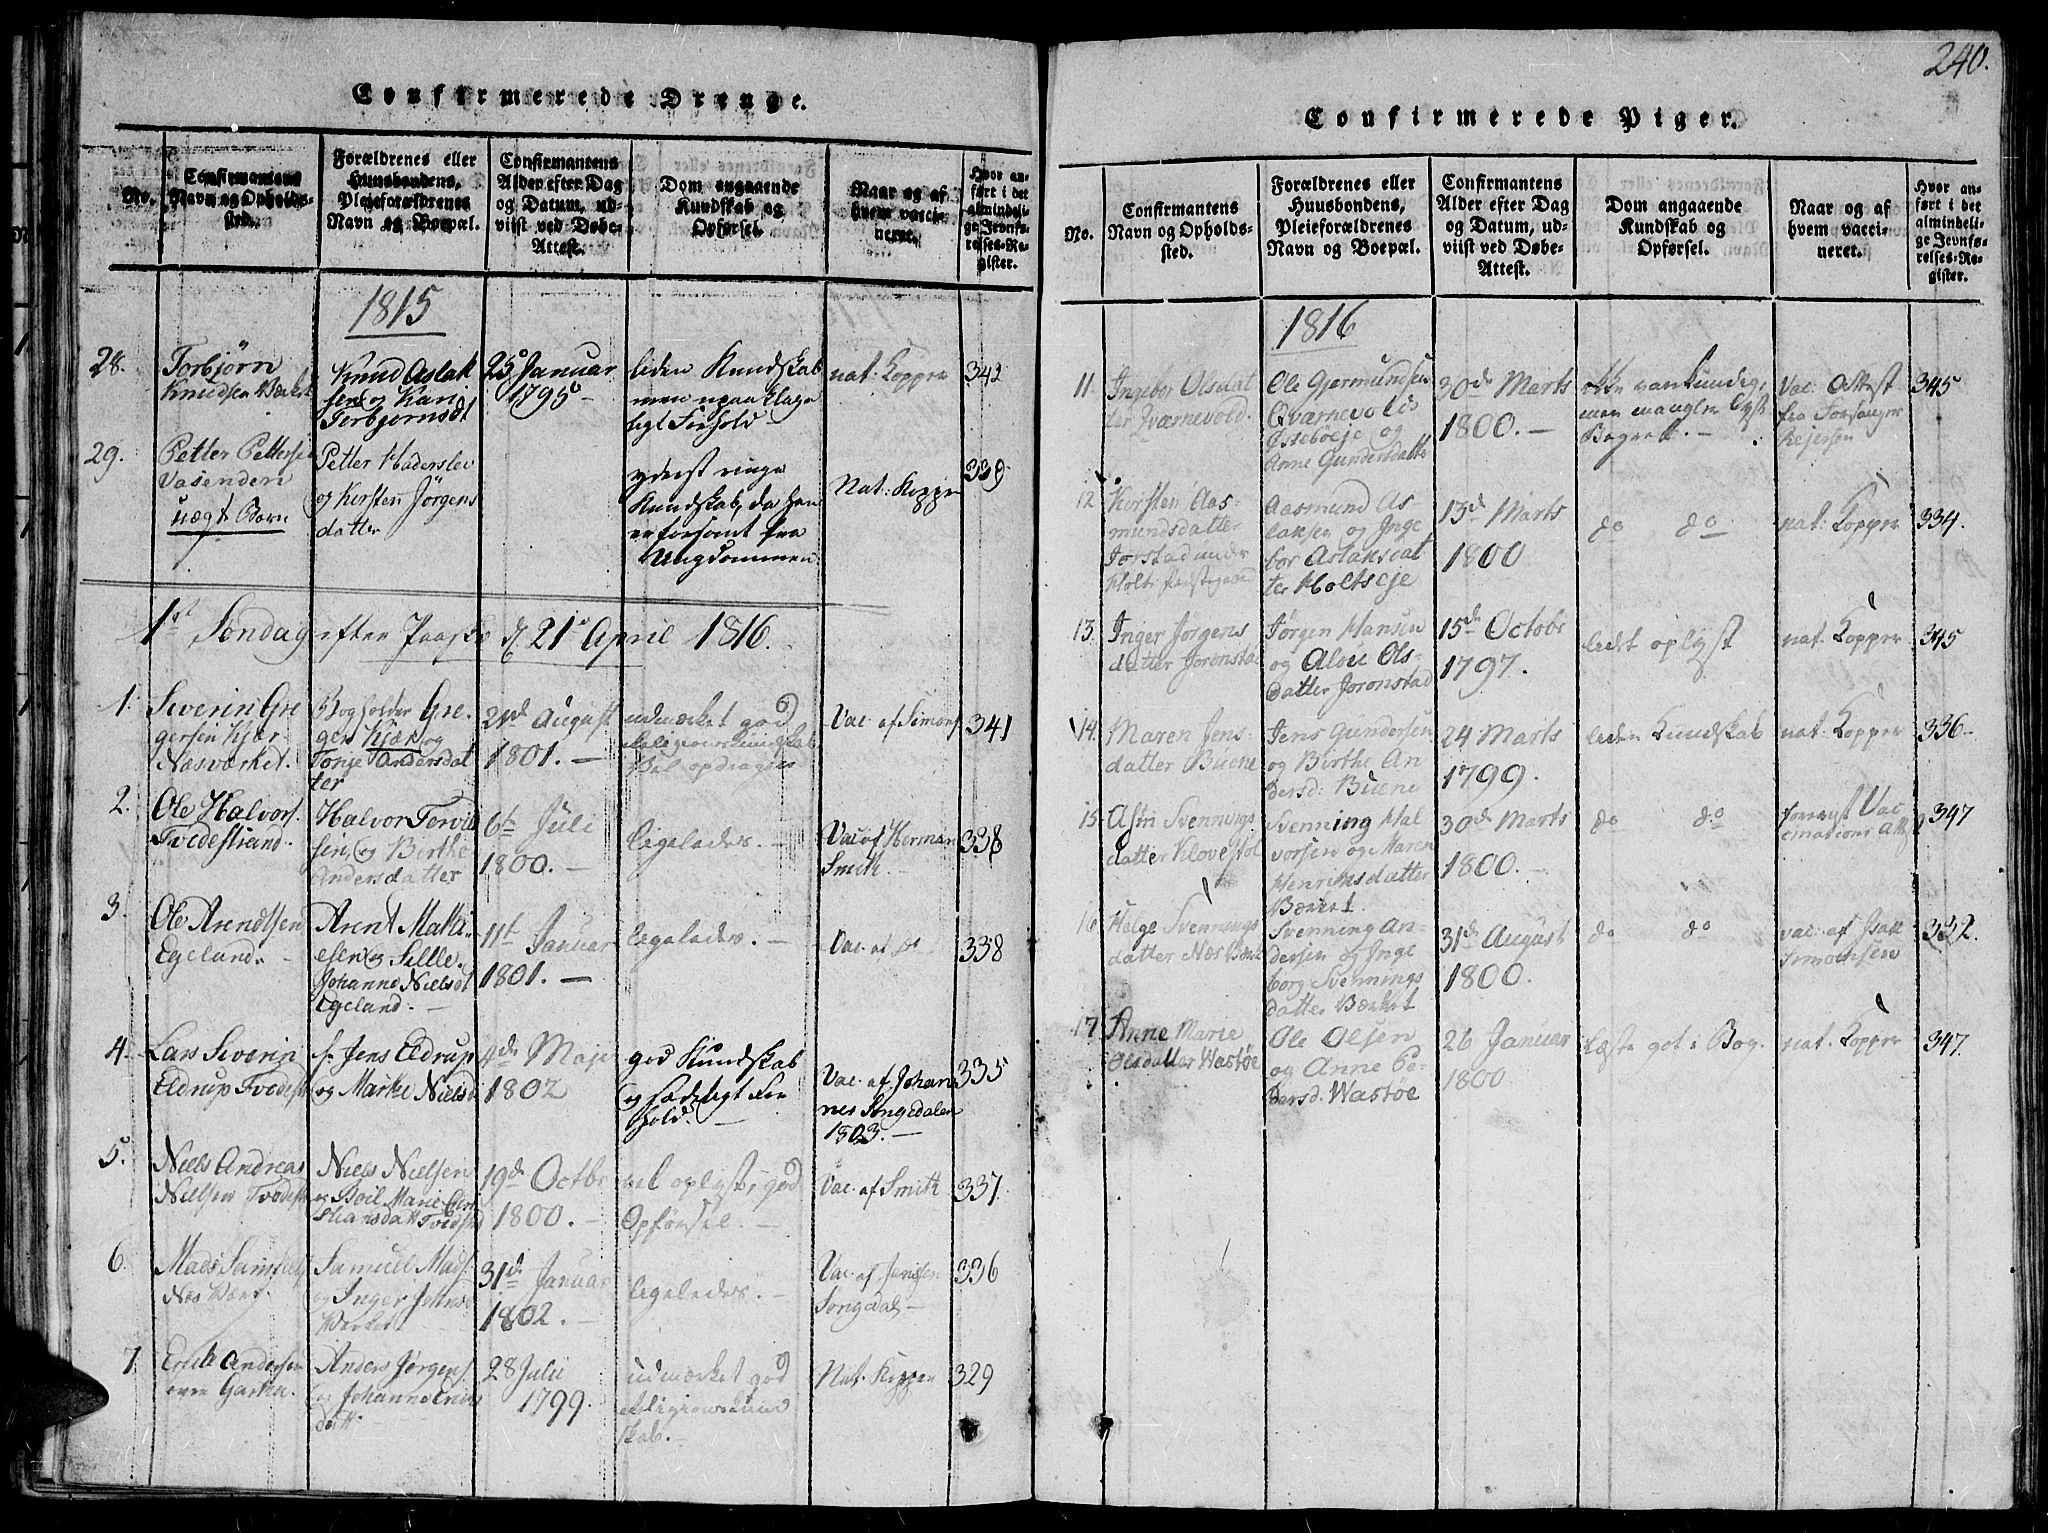 Confirmerede Drenge.
No.
Confirmantens
Navn og Opholds-
sted.
Forældrenes eller
Huusbondens,
Pleieforældrenes
Navn og Boepæl.
Confirmantens
Alder efter Dag
og Datum, ud-
viist ved Døbe-
Attest.
Dom angaaende
Kundskab og
Opførsel.
Naar og af
hvem vacci-
neret.
Hvor an-
ført i det
almindeli-
ge Jevnfø-
relses-Re-
gister.
1815
28.
Torbjørn
Knudsen
Knud Aslak
sen og Kari
Torbjornsdt
25 Januar
1795
liden Kundskab
men upaaklage
ligt Forhold
nat: Kopper
342
29.
Petter Petters
Vasenden
uægt Barn
Petter Haderslev
og Kersten Jørgens
datter
yderst ringe
Kundskab, da han
er forsømt fra
Ungdommen
Nat: Kopper
339
1st Søndag efter Paaske d 21 April 1816.
1.
Severin Gre
gersen Kjær
Næsværket.
Bogholder Gre-
gers Kjær og
Tonje Andersdat
ter
21d August
1801. —
udmærket god
Religionskundskab
Vac. af Simons
341
2.
Ole Halvors.
Tvedestrand.
Halvor
sen, og Birthe
Andersdatter
6t Juli
1800. —
ligeledes. —
Vac af Herman
Smith.
338
3.
Ole Arendtsen
Egeland. -
Arent Mathi
esen og Sille
Johanne Nielsdt
Egeland. —
11t Januar
1801. —
ligeledes. —
Vac. af do
338
4.
Lars Severin
Eldrup Tvedest
Jens Eldrup
og Marthe Nielsd
4de Maje
1802
god Kundskab
og sædeligt For
hold. —
Vac. af Johan
nes Songedalen
1803. —
335
5.
Niels Andreas
Nielsen Tvedest
Niels Nielsen
og Boil Marie Chri
stiansdatt Tvedestd
19de Octbr
1800. —
vel oplyst, god
Opførsel. —
Vac. af Smith
337
6.
Mads Samuels
Næs Værk.
Samuel Mads.
og Inger
31de Januar
1802. —
ligeledes. —
Vac. af Jenssen
Songedal —
336
7.
Erich Andersen
Anders Jørgens.
og Johanne
datt.
28 Julii
1799.
udmærket god
Religionskund
skab. —
Nat. Kopper
329
240.
Confirmerede Piger.
No.
Confirmantens
Navn og Opholds-
sted.
Forældrenes eller
Huusbondens,
Pleieforældrenes
Navn og Boepæl.
Confirmantens
Alder efter Dag
og Datum, ud-
viist ved Døbe-
Attest.
Dom angaaende
Kundskab og
Opførsel.
Naar og af
hvem vacci-
neret.
Hvor an-
ført i det
almindeli-
ge Jevnfø-
relses-Re-
gister.
1816
11.
Ingebor Olsdat
ter Qværnevold.
Ole Gjermundsen
Qværnevold
Østebøeje og
Anne Gundersdatter
30de Marts
1800. —
ikke vankundig,
men mangler lyst
Begreb. —
Vac. Attest
fra Forsanger
Rejersen
345
12
Kersten Aas-
mundsdatter
Torstad under
Holt Præstegaard
Aasmund As
laksen og Inge
bor Aslaksdat
ter Holtseje
13de Marts
1800
do do
nat: Kopper
334.
13.
Inger Jørgens
datter Joronstad
Jørgen Hansen
og Alou Ols-
datter Joronstad
15de Octobr
1797.
lidet oplyst
nat. Kopper
345
14.
Maren Jens-
datter Buene
Jens Gundersen
og Birthe An
dersd: Buene
24 Marts
1799.
liden Kundskab
nat. Kopper
336
15.
Astri Svennings
datter Klovestol
Svenning Hal
vorsen og Maren
Henrichsdatter
30de Marts
1800. —
do do
foreviist Vac
cinations Att
347
16
Helge Svennings
datter Næs Værk
Svenning An-
dersen og Inge
borg Svennings
datter Værket
31de August
1800.
do do
vac: af Isak
Simonsen
332.
17.
Anne Marie
Olsdatter Wastøe
Ole Olsen
og Anne Pe-
dersd. Wastøe
26 Januar
1800
Læste got i Bog.
nat. Kopper
347.